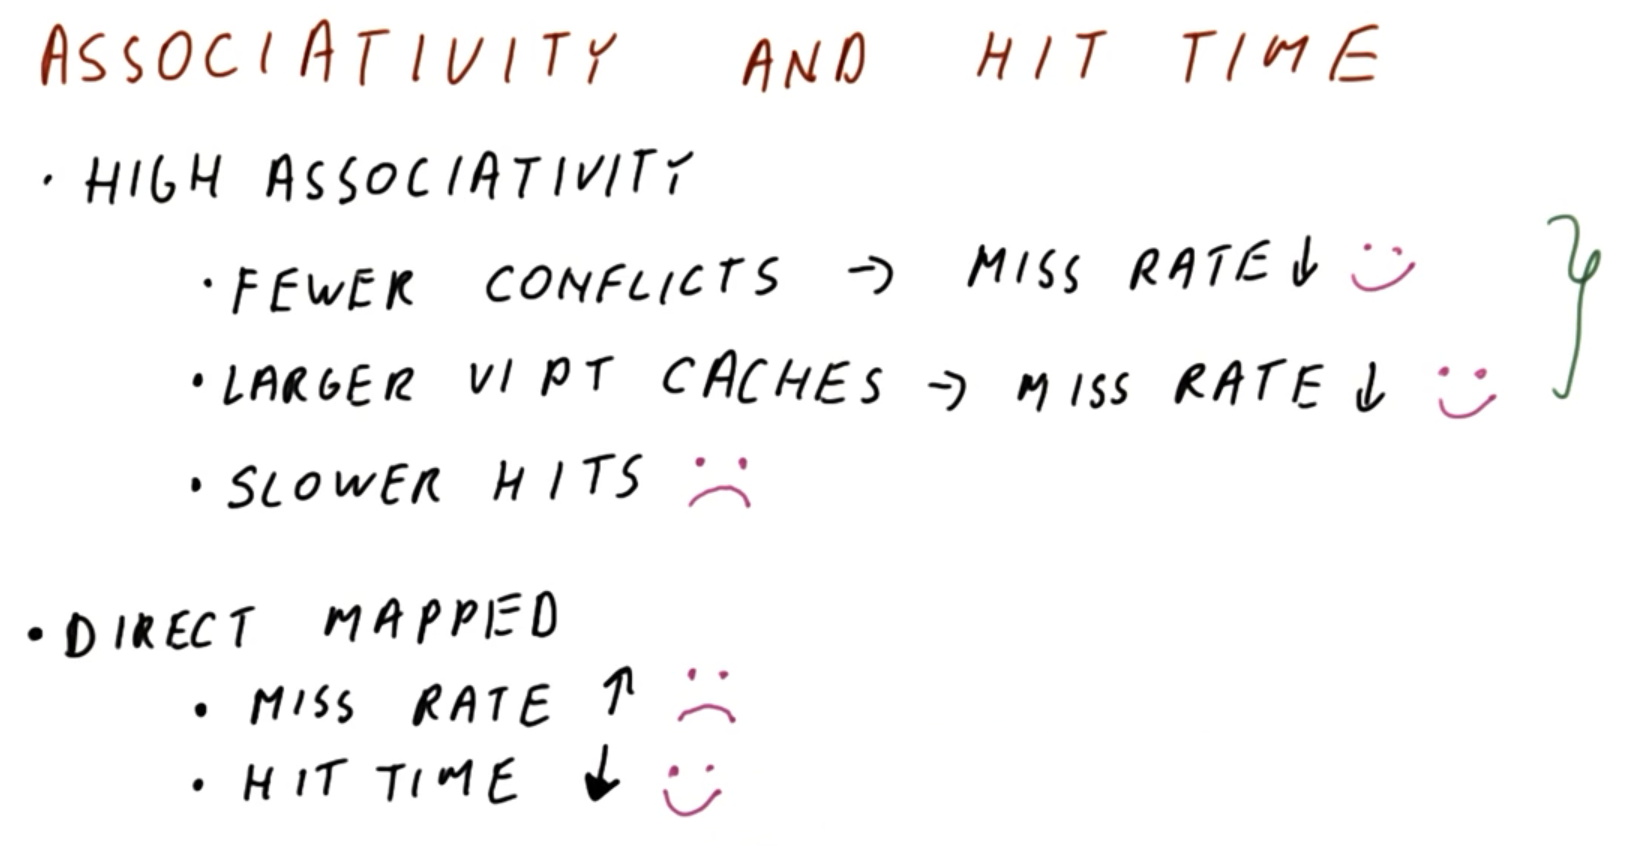 ASSOCIATIVITY AND HIT TIME
· HIGH ASSOCIATIVITY
· FEWER CONFLICTS → MISS RATE ↓
· LARGER VIPT CACHES → MISS RATE ↓
· SLOWER HITS
· DIRECT MAPPED
· MISS RATE ↑
· HIT TIME ↓